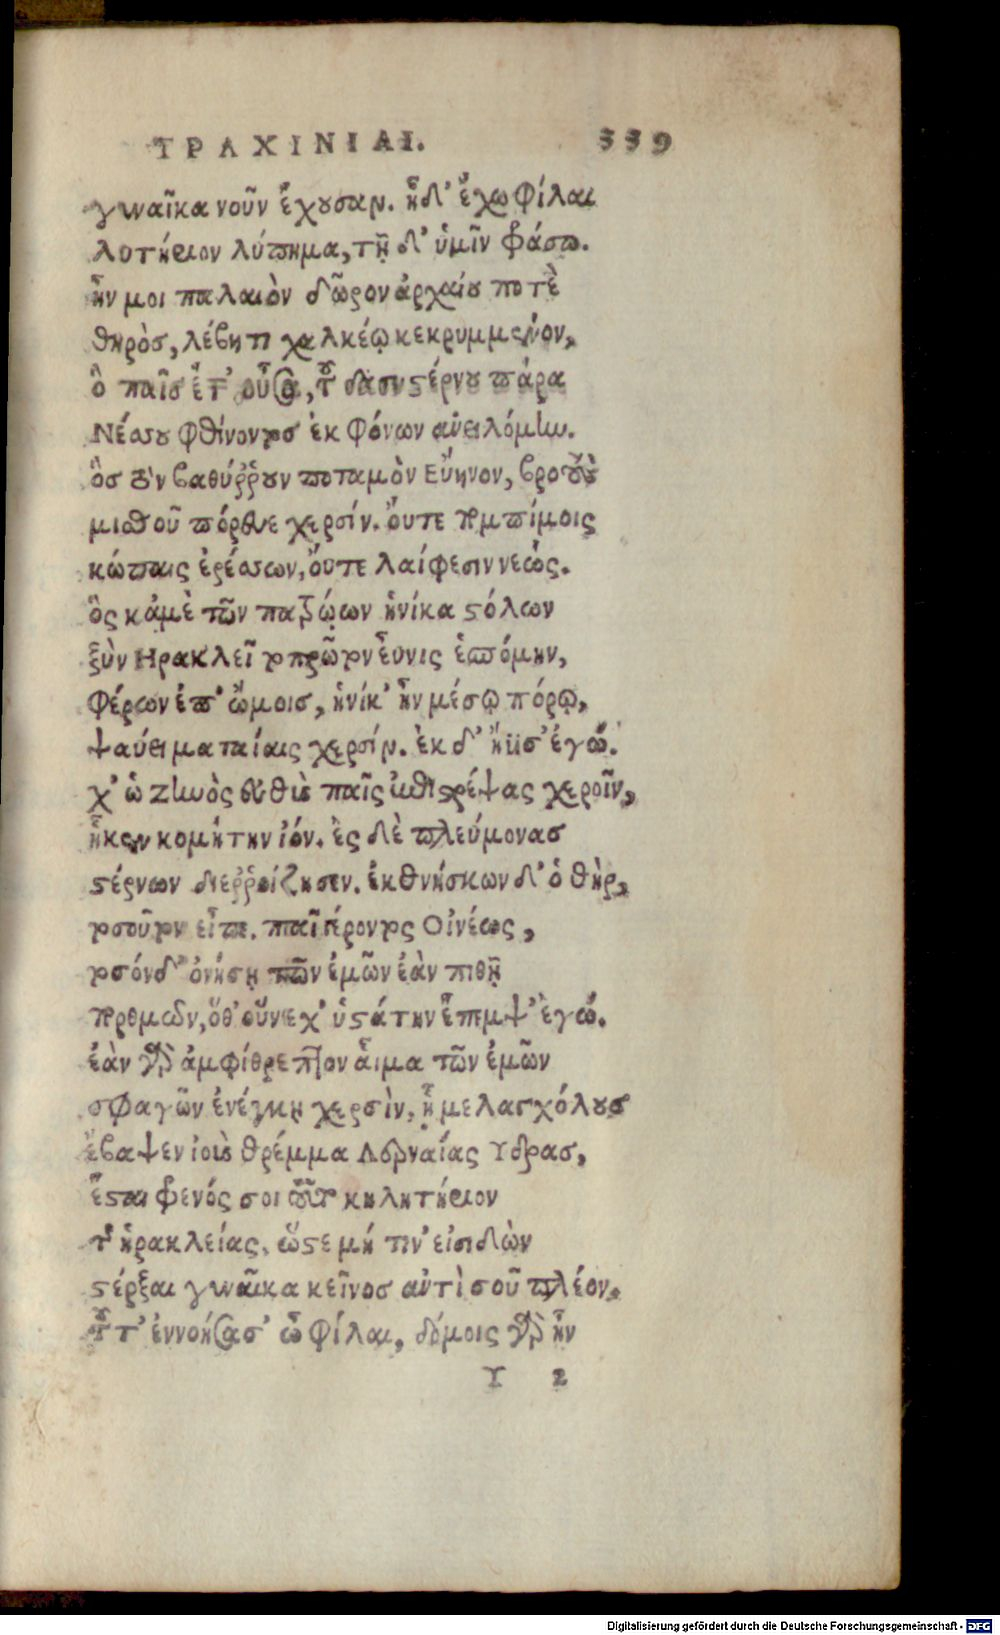 ΤΡΑΧΙΝΙΑΙ. 339
γυναῖκα νοῦν ἔχουσαν. ᾗ δ' ἔχω φίλαι
λυτήριον λύπημα, τῇ δ' ὑμῖν φράσω.
ἦν μοι παλαιὸν δῶρον ἀρχαίου ποτὲ
θηρὸς, λέβητι χαλκέῳ κεκρυμμένον,
ὃ παῖς ἔτ' οὖσα, τοῦ δασυστέρνου παρὰ
Νέσσου φθίνοντος ἐκ φόνων ἀνειλόμην.
ὃς τὸν βαθύῤῥουν ποταμὸν Εὔηνον, βροτοὺς
μισθοῦ πόρθυε χερσίν. οὔτε πομπίμοις
κώπαις ἐρέσσων, οὔτε λαίφεσιν νεώς.
ὃς κἀμὲ τὸν πατρῷον ἡνίκα στόλον
ξὺν Ηρακλεῖ τοπρῶτον εὖνις ἑσπόμην,
φέρων ἐπ' ὤμοις, ἡνίκ' ἦν μέσῳ πόρῳ,
ψαύει ματαίαις χερσίν. ἐκ δ' ἤϋσ' ἐγώ.
χ' ὡ ζηνὸς εὐθὺς παῖς ἐπιστρέψας χεροῖν,
ἧκεν κομήτην ἰόν. ἐς δὲ πλεύμονας
στέρνων διεῤῥοίζησεν. ἐκθνήσκων δ' ὁ θὴρ,
τοσοῦτον εἶπε. παῖ γέροντος Οἰνέως,
τοσόνδ' ὀνήσῃ τῶν ἐμῶν ἐὰν πιθῇ
πορθμῶν, ὅθ' οὕνεχ' ὑστάτην ἔπεμψ' ἐγώ.
ἐὰν γὰρ ἀμφίθρεπτον αἷμα τῶν ἐμῶν
σφαγῶν ἐνέγκῃ χερσὶν, ᾗ μελαγχόλους
ἔβαψεν ἰοὺς θρέμμα Λερναίας Υδρας,
ἔσται φρενός σοι τοῦτο κηλητήριον
τῆς ἡρακλείας, ὥστε μή τιν' εἰσιδὼν
στέρξαι γυναῖκα κεῖνος ἀντὶ σοῦ πλέον.
τοῦτ' ἐννοήσασ' ὦ φίλαι, δόμοις γὰρ ἦν
Υ 2
Digitalisierung gefördert durch die Deutsche Forschungsgemeinschaft - DFG